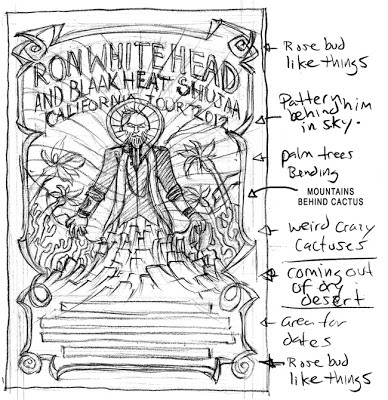 RON WHITEHEAD
AND BLAAK HEAT SHUJAA
CALIFORNIA TOUR 2012
Rose bud
like things
Pattern him
behind
in sky.
palm trees
Bending
MOUNTAINS
BEHIND CACTUS
weird crazy
cactuses
coming out
of dry
desert
area for
dates
Rose bud
like things